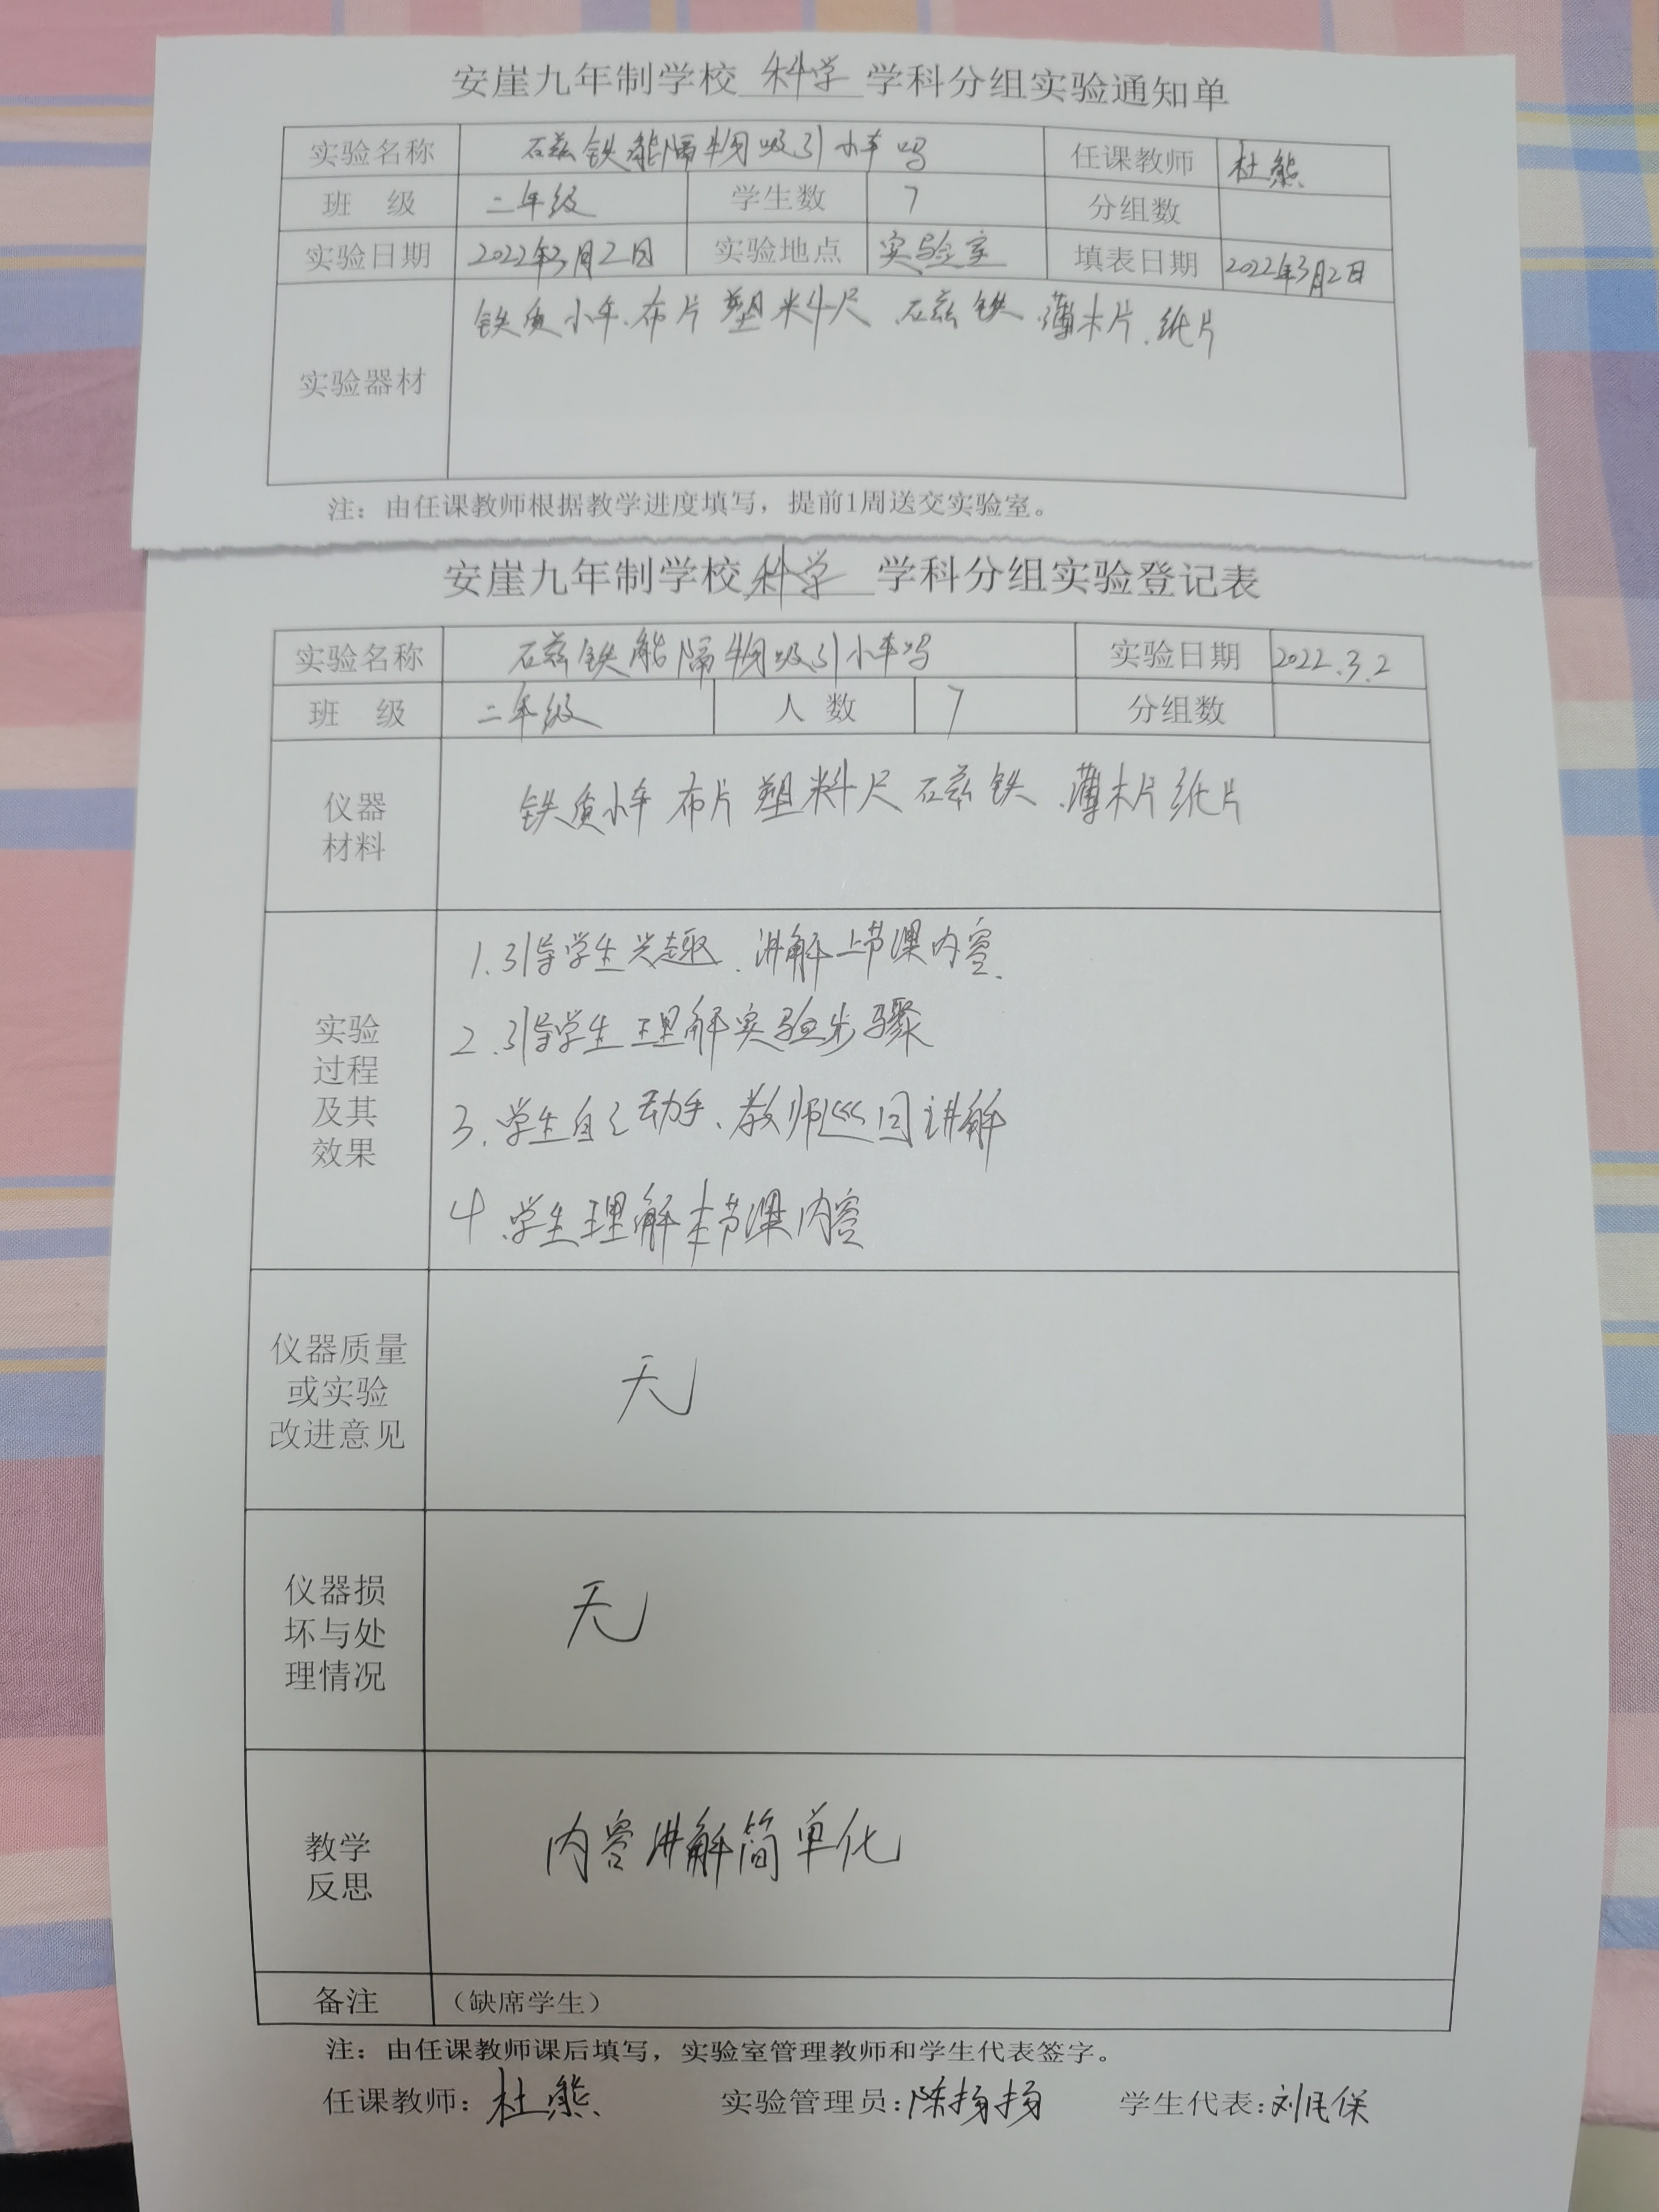 安崖九年制学校 科学 学科分组实验通知单
实验名称 石磁铁能隔物吸引小车吗 任课教师 杜熊
班 级 二年级 学生数 7 分组数
实验日期 2022年3月2日 实验地点 实验室 填表日期 2022年3月2日
实验器材 铁质小车、布片 塑料尺 石磁铁、薄木片、纸片
注：由任课教师根据教学进度填写，提前1周送交实验室。
安崖九年制学校 科学 学科分组实验登记表
实验名称 石磁铁能隔物吸引小车吗 实验日期 2022.3.2
班 级 二年级 人 数 7 分组数
仪器
材料
铁质小车 布片 塑料尺 石磁铁、薄木片 纸片
实验
过程
及其
效果
1.引导学生兴趣、讲解上节课内容、
2.引导学生理解实验步骤
3.学生自己动手、教师巡回讲解
4.学生理解本节课内容
仪器质量
或实验
改进意见
无
仪器损
坏与处
理情况
无
教学
反思
内容讲解简单化
备注 （缺席学生）
注：由任课教师课后填写，实验室管理教师和学生代表签字。
任课教师：杜熊 实验管理员：陈扬扬 学生代表：刘民保